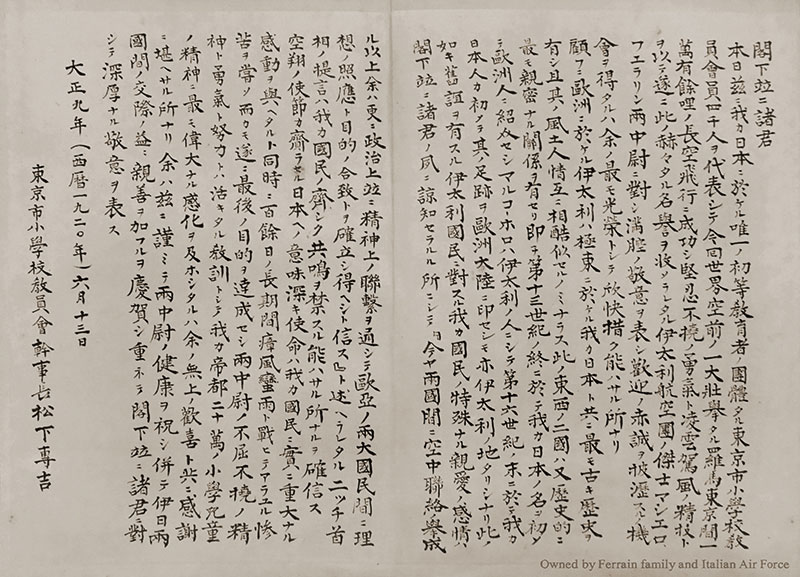 閣下竝ニ諸君
本日玆ニ我カ日本ニ於ケル唯一ノ初等敎育者ノ團體タル東京市小學校敎
員會員四千人ヲ代表シテ今回世界空前ノ一大壯擧タル羅馬東京間一
萬有餘哩ノ長空飛行ニ成功シ堅忍不撓ノ勇氣ト凌雲駕風ノ精技ト
ヲ以テ遂ニ此ノ赫々タル名譽ヲ收メラレタル伊太利航空團ノ傑士マシエロ
フエラリン兩中尉ニ對シ滿腔ノ敬意ヲ表シ歡迎ノ赤誠ヲ披瀝スル機
會ヲ得タルハ余ノ最モ光榮トシテ欣快措ク能ハサル所ナリ
顧フニ歐洲ニ於ケル伊太利ハ極東ニ於ケル我カ日本ト共ニ最モ古キ歴史ヲ
有シ且其ノ風土人情互ニ相酷似セルノミナラス此ノ東西ノ二國ハ又歴史的ニ
最モ親密ナル關係ヲ有セリ即チ第十三世紀ノ終ニ於テ我カ日本ノ名ヲ初メ
テ歐洲人ニ紹介セシマルコーポロハ伊太利ノ人ニシテ第十六世紀ノ末ニ於テ我カ
日本人カ初メテ其ノ足跡ヲ歐洲大陸ニ印セシモ亦伊太利ノ地タリシナリ此ノ
如キ舊誼ヲ有スル伊太利國民ニ對スル我カ國民ノ特殊ナル親愛ノ感情ハ
閣下竝ニ諸君ノ夙ニ諒知セラルル所ニシテ今ヤ兩國間ニ空中聯絡擧成
ル以上余ハ更ニ政治上竝ニ精神上ノ聯繫ヲ通シテ歐亞ノ兩大國民間ニ理
想ノ照應ト目的ノ合致トヲ確立シ得ヘシト信ス』ト述ヘラレタルニッチ首
相ノ提言ハ我カ國民ノ齊シク共鳴ヲ禁スル能ハサル所ナルヲ確信ス
空翔ノ使節カ齎ラセル日本ヘノ意味深キ使命ハ我カ國民ニ實ニ重大ナル
感動ヲ與ヘタルト同時ニ百餘日ノ長期間瘴風蠻雨ト戰ヒテアラユル慘
苦ヲ嘗メ而カモ遂ニ最後ノ目的ヲ達成セシ兩中尉ノ不屈不撓ノ精
神ト勇氣ト努力トハ活キタル敎訓トシテ我カ帝都二十萬ノ小學兒童
ノ精神ニ最モ偉大ナル感化ヲ及ホシタルハ余ノ無上ノ歡喜ト共ニ感謝
ニ堪ヘサル所ナリ 余ハ玆ニ謹ミテ兩中尉ノ健康ヲ祝シ併テ伊日兩
國間ノ交際ノ益々親善ヲ加フルヲ慶賀シ重ネテ閣下竝ニ諸君ニ對
シテ深厚ナル敬意ヲ表ス
大正九年(西曆一九二〇年)六月十三日
東京市小學校敎員會幹事長松下專吉
Owned by Ferrain family and Italian Air Force